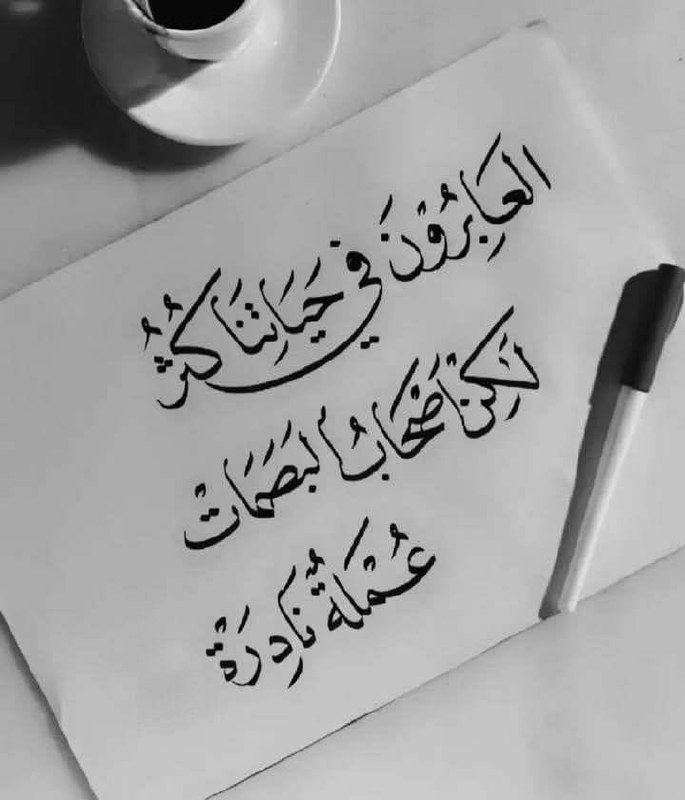 العَابِرُوْنَ في حَيَاتِنَا كُثُرُ
لَكِنْ أَصْحَابُ البَصَمَاتْ
عُمْلَةٌ نَادِرَةْ